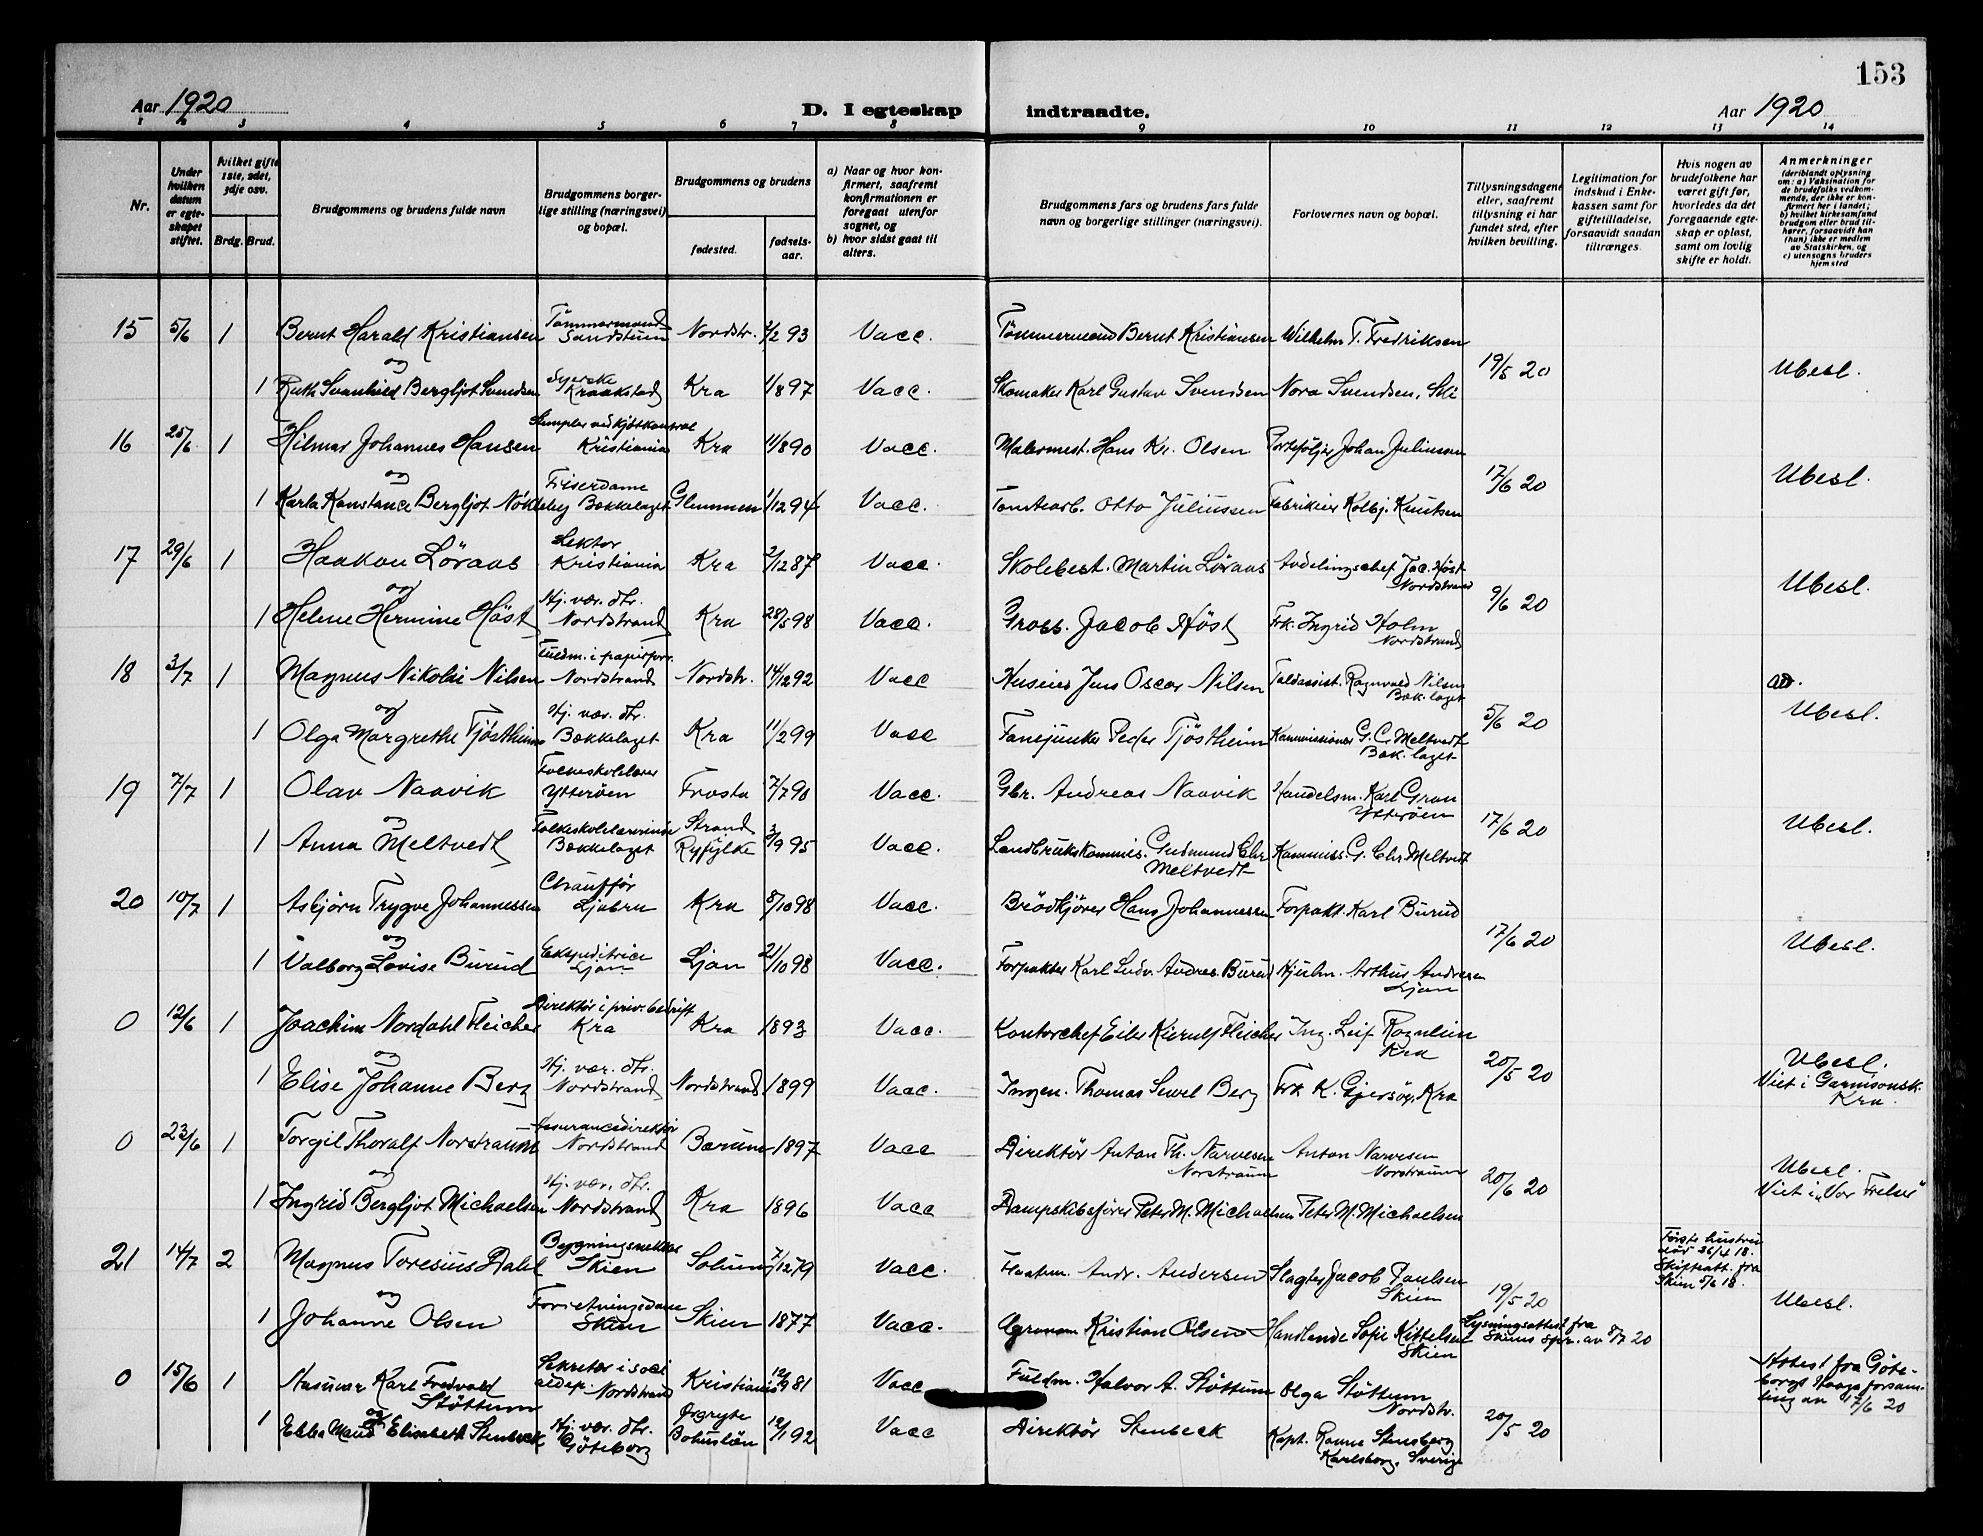 153
Aar 1920
D. I egteskap indtraadte.
Aar 1920
1 2 3 4 5 6 7 8 9 10 11 12 13 14
Nr.
Under hvilken datum er egteskapet stiftet.
hvilket gifte 1ste, 2det, 3dje osv.
Brdg. Brud.
Brudgommens og brudens fulde navn
Brudgommens borgerlige stilling (næringsvei) og bopæl.
Brudgommens og brudens
fødested.
fødselsaar.
a) Naar og hvor konfirmert, saafremt konfirmationen er foregaat utenfor sognet, og
b) hvor sidst gaat til alters.
Brudgommens fars og brudens fars fulde navn og borgerlige stillinger (næringsvei).
Forlovernes navn og bopæl.
Tillysningsdagene eller, saafremt tillysning ei har fundet sted, efter hvilken bevilling.
Legitimation for indskud i Enkekassen samt for giftetilladelse, forsaavidt saadan tiltrænges
Hvis nogen av brudefolkene har været gift før, hvorledes da det foregaaende egteskap er opløst, samt om lovlig skifte er holdt.
Anmerkninger (deriblandt oplysning om: a) Vaksination for de brudefolks vedkommende, der ikke er konfirmert her i landet; b) hvilket kirkesamfund brudgom eller brud tilhører, forsaavidt han (hun) ikke er medlem av Statskirken, og c) utensogns bruders hjemsted
15 5/6 1 Bernt Harald Kristiansen Tømmermand Sandstuen Nordstr. 2/2 93 Vacc. Tömmermand Bernt Kristiansen Wilhelm T. Fredriksen
og 19/5 20 Ubesl.
1 Ruth Svanhild Bergljot Svendsen Syerske Kraakstad Kra 1/8 97 Vacc. Skomaker Karl Gustav Svendsen Nora Svendsen, Ski
16 25/6 1 Hilmar Johannes Hansen Stempler ved kjøtkontrol Kristiania Kra 11/8 90 Vacc. Malermest. Hans Kr. Olsen Porteføljer Johan Juliussen
og 17/6 20 Ubesl.
1 Karla Konstance Bergljot Nökleby Friserdame Bækkelaget Glemmen 1/12 94 Vacc. Tomtearb. Otto Juliussen Fabrikeier Kolbj. Knutsen
17 29/6 1 Haakon Löraas Lektor Kristiania Kra 2/12 87 Vacc. Skolebest. Martin Löraas Avdelingschef Jac. Höst Nordstrand
og 9/6 20 Ubesl.
1 Helene Hermine Höst Hj. vær. dtr. Nordstrand Kra 28/5 98 Vacc. Gross. Jacob Höst Frk. Ingrid Holm Nordstrand
18 3/7 1 Magnus Nikolai Nilsen Fuldm. i papirforr. Nordstrand Nordstr. 14/12 92 Vacc Huseier Jens Oscar Nilsen Toldassist. Ragnvald Nilsen Bæk.laget
og 5/6 20 Ubesl.
1 Olga Margrethe Tjøstheim Hj. vær. dtr. Bækkelaget Kra 11/2 99 Vacc Fanejunker Peder Tjöstheim Kommissionær G. C. Meltvedt Bæk.laget
19 7/7 1 Olav Naavik Folkeskolelærer Ytterøen Frosta 7/7 90 Vacc. Gbr. Andreas Naavik Handelsm. Karl Gran Ytterøen
og 17/6 20 Ubesl.
1 Anna Meltvedt Folkeskolelærerinde Bækkelaget Strand i Ryfylke 3/9 95 Vacc. Landbrukskommis. Gudmund Chr. Meltvedt Kommiss. G. Chr. Meltvedt
20 10/7 1 Asbjørn Trygve Johannessen Chauffør Ljabru Kra 8/10 98 Vacc. Brödkjörer Hans Johannessen Forpakt. Karl Burud
og 17/6 20 Ubesl.
1 Valborg Lovise Burud Ekspeditrice Ljan Ljan 21/10 98 Vacc. Forpakter Karl Ludv. Andrea. Burud Hjulm. Arthur Andresen Ljan
0 12/6 1 Joachim Nordahl Fleicher Direktør i priv. bedrift Kra Kra 1893 Vacc. Kontorchef Eiler Kierulf Fleicher Ing. Leif Rognlien Kra
og 20/5 20 Ubesl. Viet i Garnisonsk. Kra.
1 Elise Johanne Berg Hj. vær. dtr. Nordstrand Nordstrand 1899 Vacc. Ingen. Thomas Sewel Berg Frk K. Gjersöy, Kra
0 23/6 1 Torgil Thoralf Norstraum Assurancedirektør Nordstrand Bærum 1897 Vacc Direktör Anton Th. Narvesen Norstraum Anton Narvesen Norstraum
og 20/6 20 Ubesl. Viet i "Vor Frelser"
1 Ingrid Bergljot Michaelsen Hj. vær. dtr. Nordstrand Kra 1896 Vacc Dampskibsfører Peter M. Michaelsen Peter M. Michaelsen
21 14/7 2 Magnus Toresius Dahl Bygningssnekker Skien Solum 7/12 79 Vacc. Fløtem. Andr. Andersen Slagter Jacob Paulsen Skien
Første hustru död 26/4 18. Skifteatt. fra Skien 5/6 18.
og 19/5 20 Ubesl.
1 Johanne Olsen Forretningsdame Skien Skien 1877 Vacc. Agronom Kristian Olsen Handlende Sofie Kittelsen Skien Lysningsattest fra Skiens spr. av 8/7 20
0 15/6 1 Rasmus Karl Fredvald Støttum Sekretær i soci aldep. Nordstrand Kristiania 12/9 81 Vacc Fuldm. Halvor A. Støttum Olga Støttum Nordstr.
og 20/5 20 Attest fra Göteborgs Haga forsamling av 17/6 20
1 Ebba Maud Elisabeth Stenbeck Hj. vær. dtr. Göteborg Ørgryte Bohuslän 12/1 92 Vacc Direktör Stenbeck Kapt. Stensberg Karlsborg, Sverige